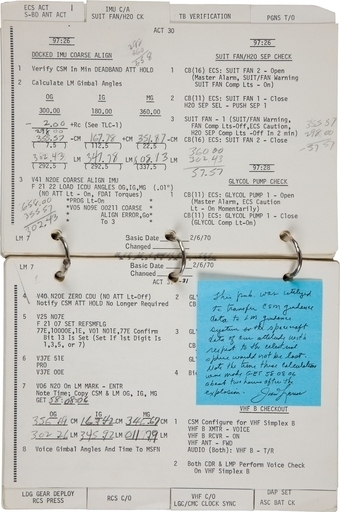 ECS ACT I
S-BD ANT ACT
IMU C/A
SUIT FAN/H2O CK
TB VERIFICATION
PGNS T/O
ACT 30
97:26
DOCKED IMU COARSE ALIGN
1 Verify CSM In Min DEADBAND ATT HOLD
2 Calculate LM Gimbal Angles
OG IG MG
300.00 180.00 360.00
- 2.00 +Rc (See TLC-1)
298.00
355.57 CM 167.78 CM 351.87 CM
( 7.5 ) (112.5 ) ( 22.5 )
302.43 LM 347.78 LM 08.13 LM
(292.5 ) (292.5 ) (337.5 )
3 V41 N20E COARSE ALIGN IMU
F 21 22 LOAD ICDU ANGLES OG,IG,MG (.01°)
(NO ATT Lt - On, FDAI Torques)
*PROG Lt-On *
*V05 N09E 00211 COARSE *
* ALIGN ERROR,Go*
* To 3 *
97:26
SUIT FAN/H2O SEP CHECK
1 CB(16) ECS: SUIT FAN 2 - Open
(Master Alarm, SUIT/FAN Warning
SUIT FAN Comp Lts - On)
2 CB(11) ECS: SUIT FAN 1 - Close
H2O SEP SEL - PUSH SEP 1
3 SUIT FAN - 1 (SUIT/FAN Warning,
FAN Comp Lts-Off,ECS Caution,
H2O SEP Comp Lts-Off In 2 min)
CB(16) ECS: SUIT FAN 2 - Close
355.57
298.00
57.57
360.00
302.43
57.57
97:28
GLYCOL PUMP CHECK
1 CB(11) ECS: GLYCOL PUMP 1 - Open
(Master Alarm, ECS Caution
Lt - On Momentarily)
CB(11) ECS: GLYCOL PUMP 1 - Close
(GLYCOL Comp Lt-On)
LM 7
Basic Date 2/6/70
Changed
LM 7
Basic Date 2/6/70
Changed
4 V40 N20E ZERO CDU (NO ATT Lt-Off)
Notify CSM ATT HOLD No Longer Required
5 V25 N07E
F 21 07 SET REFSMFLG
77E,10000E,1E, V01 N01E,77E Confirm
Bit 13 Is Set (Set If 1st Digit Is
1,3,5, or 7)
6 V37E 51E
PRO
V37E 00E
7 V06 N20 On LM MARK - ENTR
Note Time; Copy CSM & LM OG, IG, MG
GET 58:08:06
OG IG MG
CM CM CM
LM LM LM
8 Voice Gimbal Angles And Time To MSFN
This book was utilized
to transfer CSM guidance
data to LM guidance
system so the spacecraft
data of our attitude with
respect to the celestial
sphere would not be lost.
Note the time these calculations
was made GET 58 08 06
about two hours after the
explosion. Jim Lovell
VHF B CHECKOUT
1 CSM Configure for VHF Simplex B
VHF B XMTR - VOICE
VHF B RCVR - ON
VHF ANT - FWD
AUDIO (Both): VHF B - T/R
2 Both CDR & LMP Perform Voice Check
On VHF Simplex B
LOG GEAR DEPLOY
RCS PRESS
RCS C/O
VHF C/O
LGC/CMC CLOCK SYNC
DAP SET
ASC BAT CK